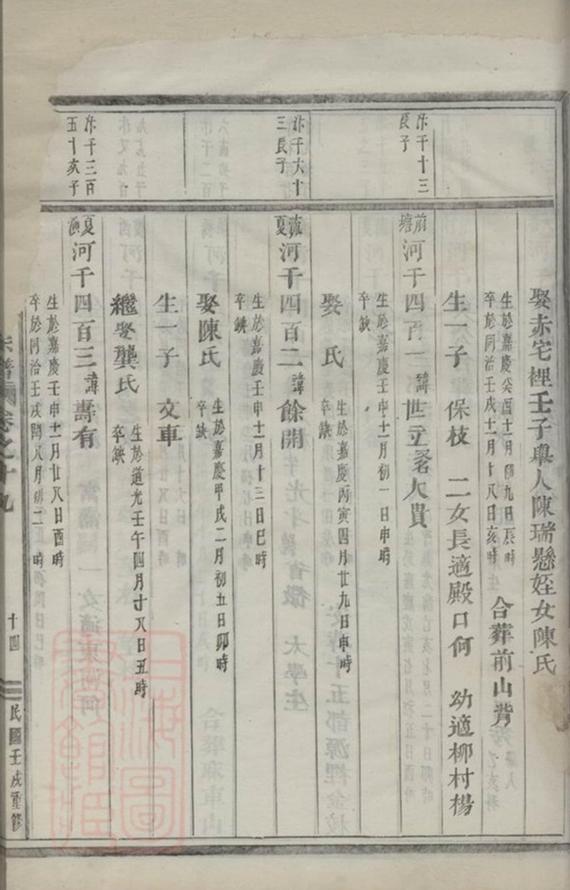 娶赤宅裡壬子舉人陳瑞懸姪女陳氏
生於嘉慶癸酉十月初九日辰時
卒於同治壬戌十一月十八日亥時
合葬前山背
生一子 保枝 二女長適殿口何 幼適柳村楊
忭千十三
長子
前塘
河千四百一諱世立名大貴
生於嘉慶壬申十一月初一日申時
卒缺
娶 氏
生於嘉慶丙寅四月廿九日申時
卒缺
忭千六十
三長子
夏
河千四百二諱餘開
生於嘉慶壬申十一月十三日巳時
卒缺
娶陳氏
生於嘉慶甲戌二月初五日卯時
卒缺
生一子 文車
繼娶龔氏
生於道光壬午四月廿八日丑時
卒缺
忭千三百
五十亥子
夏
河千四百三諱壽有
生於嘉慶壬申十一月廿八日酉時
卒於同治壬戌閏八月初二時
宗譜
卷之十九
十四
民國壬戌重修